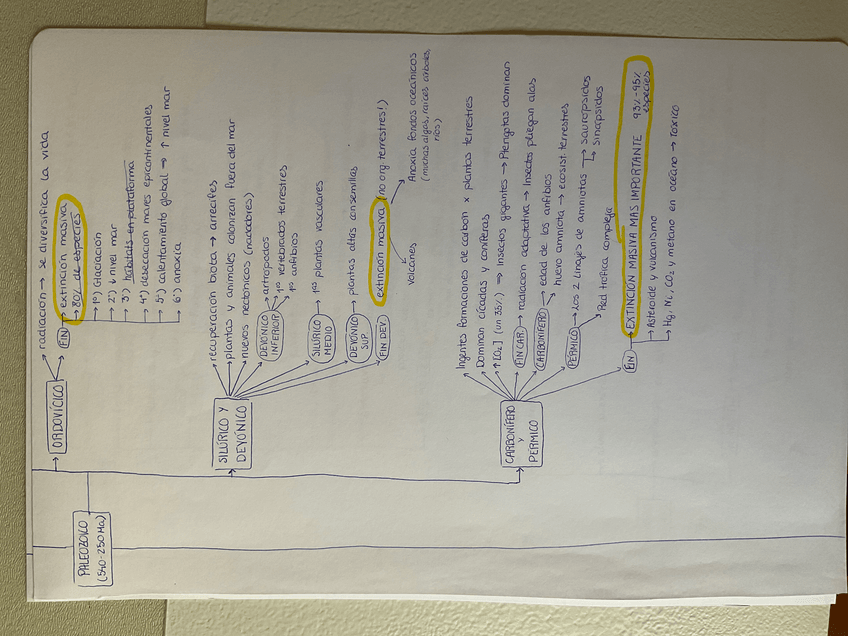 PALEOZOICO
(540-250 Ma)
ORDOVÍCICO
radiación → se diversifica la vida
FIN → extinción masiva
→ 80% de especies
1º) Glaciación
2º) ↓ nivel mar
3º) habitats en plataforma
4º) desecación mares epicontinentales
5º) calentamiento global → ↑ nivel mar
6º) anoxia
SILÚRICO Y
DEVÓNICO
recuperación biota → arrecifes
plantas y animales colonizan fuera del mar
nuevos nectónicos (nadadores)
DEVÓNICO
INFERIOR
artrópodos
1º vertebrados terrestres
1º anfibios
SILÚRICO
MEDIO
→ 1ª plantas vasculares
DEVÓNICO
SUP.
→ plantas altas con semillas
FIN DEV.
extinción masiva (no org. terrestres!)
volcanes
Anoxia fondos oceánicos
(muchas algas, raíces árboles,
ríos)
CARBONÍFERO
Y
PÉRMICO
Ingentes formaciones de carbón x plantas terrestres
Dominan cícadas y coníferas
↑[O₂] (un 35%) → insectos gigantes → Pterigotas dominan
FIN CAR. → radiación adaptativa → Insectos pliegan alas
CARBONÍFERO
edad de los anfibios
huevo amniota → ecosist. terrestres
PÉRMICO → Los 2 linajes de amniotas → sauropsidos
→ Sinapsidos
Red trófica compleja
FIN → EXTINCIÓN MASIVA MAS IMPORTANTE 93%-95%
especies
→ Asteroide y vulcanismo
→ Hg, Ni, CO₂ y metano en océano → tóxico